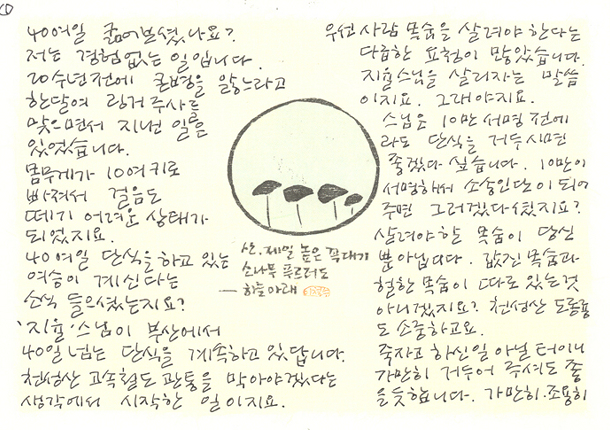 40여일 굶어보셨나요?
저는 경험없는 일입니다.
20수년전에 큰병을 앓느라고
한달여 링거주사를
맞으면서 지낸 일은
있었습니다.
몸무게가 10여키로
빠져서 걸음도
떼기 어려운 상태가
되었지요.
40여일 단식을하고 있는
여승이 계신다는
소식 들으셨는지요?
'지율'스님이 부산에서
40일넘는 단식을 계속하고 있답니다.
천성산 고속철도 관통을 막아야겠다는
생각에서 시작한 일이지요.
산. 제일 높은 꼭대기
소나무 푸르러도
— 하늘 아래
우선 사람 목숨을 살려야 한다는
다급한 요청이 많았습니다.
지율스님을 살리자는 말씀
이지요. 그래야지요.
스님은 10만 서명 전에
라도 단식을 거두시면
좋겠다 싶습니다. 10만이
서명해서 소송인단이 되어
주면 그러겠다셨지요?
살려야할 목숨이 당신
뿐 아닙니다. 값진 목숨과
헐한 목숨이 따로 있는것
아니겠지요? 천성산 도롱뇽
도 소중하고요.
죽자고 하신일 아닐 터이니
가만히 거두어 주셔도 좋
을듯합니다. 가만히·조용히